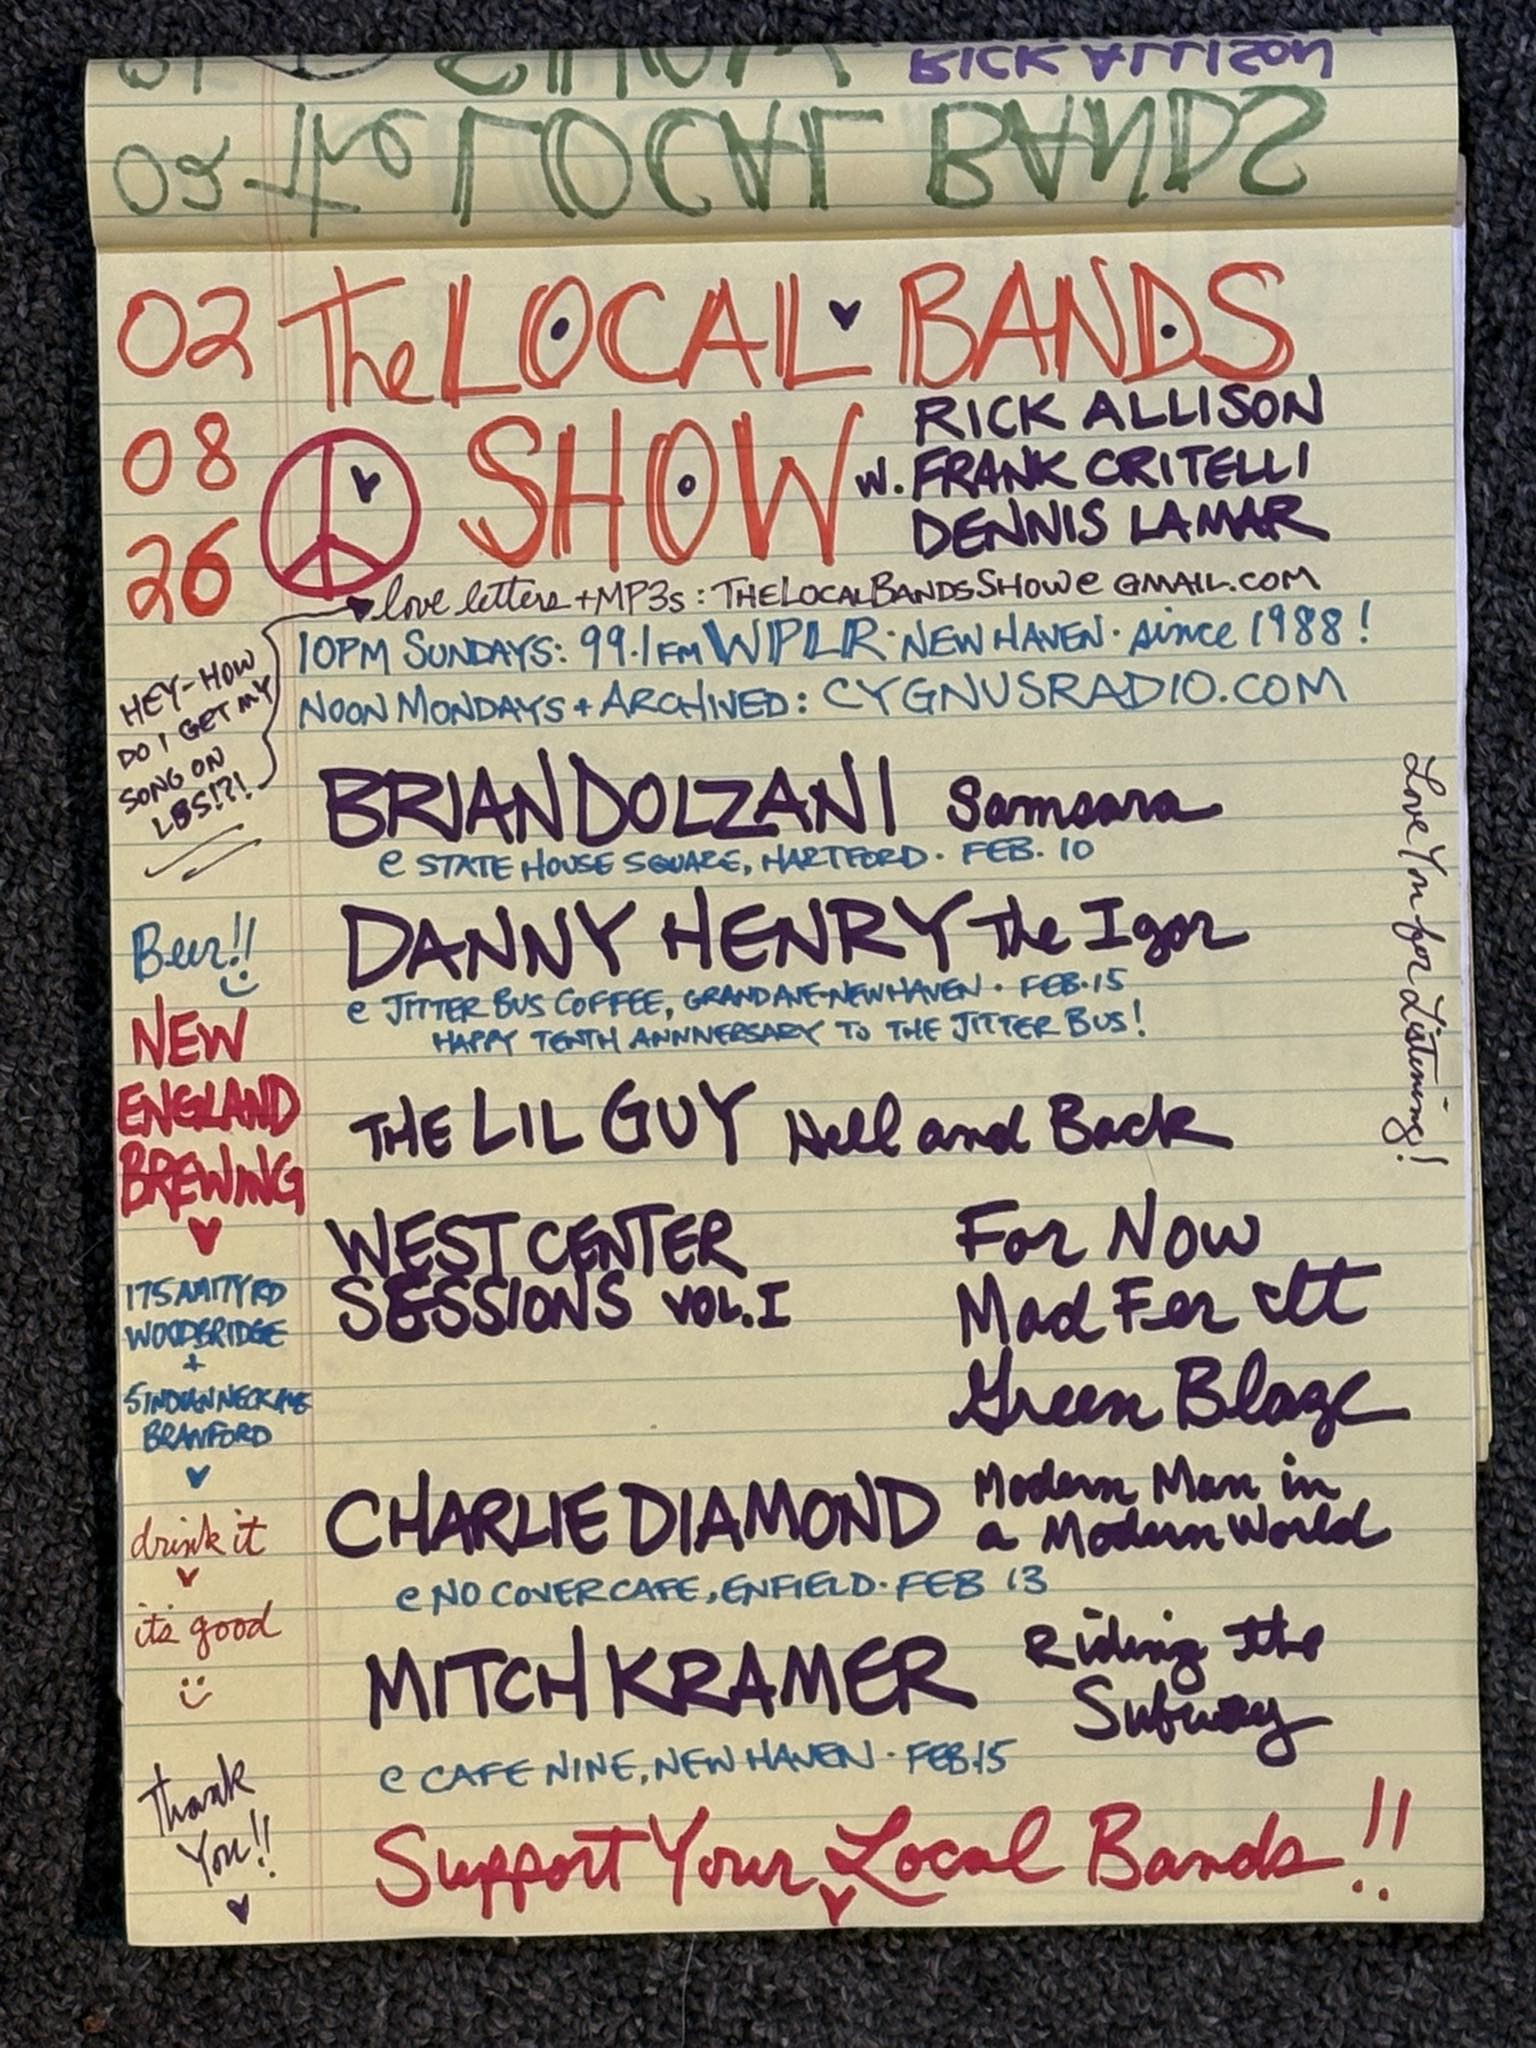 RICK ALLISON
The LOCAL BANDS
02 The LOCAL BANDS
08 SHOW w. RICK ALLISON
FRANK CRITELLI
DENNIS LAMAR
26
love letters + MP3s: THELOCALBANDSSHOW@GMAIL.COM
10PM SUNDAYS: 99.1FM WPLR · NEW HAVEN · since 1988!
NOON MONDAYS + ARCHIVED: CYGNUSRADIO.COM
HEY-HOW
DO I GET MY
SONG ON
LBS!?!
BRIAN DOLZANI Samsara
@ STATE HOUSE SQUARE, HARTFORD · FEB. 10
DANNY HENRY The Igor
@ JITTER BUS COFFEE, GRAND AVE-NEW HAVEN · FEB. 15
HAPPY TENTH ANNNERSARY TO THE JITTER BUS!
THE LIL GUY Hell and Back
WEST CENTER
SESSIONS VOL. I
For Now
Mad For It
Green Blaze
CHARLIE DIAMOND Modern Man in
a Modern World
@ NO COVER CAFE, ENFIELD · FEB 13
MITCH KRAMER Riding the
Subway
@ CAFE NINE, NEW HAVEN · FEB. 15
Support Your Local Bands!!
Beer!!
NEW
ENGLAND
BREWING
175 AMITY RD
WOODBRIDGE
+
5 INDIAN NECK AVE
BRANFORD
drink it
it's good
Thank
You!!
Love You for Listening!